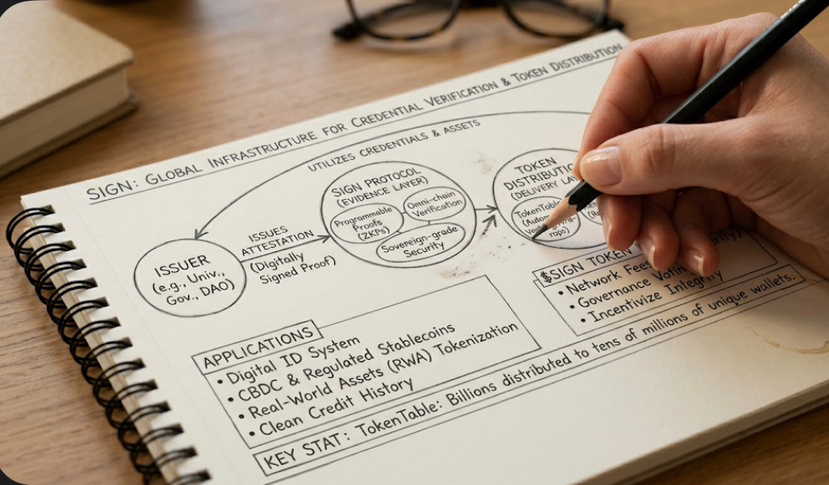 SIGN: GLOBAL INFRASTRUCTURE FOR CREDENTIAL VERIFICATION & TOKEN DISTRIBUTION
UTILIZES CREDENTIALS & ASSETS
ISSUER
(e.g., Univ.,
Gov., DAO)
ISSUES
ATTESTATION
(Digitally
Signed Proof)
SIGN PROTOCOL
(EVIDENCE LAYER)
Programmable
Proofs
(ZKPs)
Omni-chain
Verification
Sovereign-grade
Security
TOKEN
DISTRIBUTI
(DELIVERY LAYE
TokenTable
$SIGN TOKEN
• Network Fees
• Governance Voting
• Incentivize Integrity
APPLICATIONS
• Digital ID System
• CBDC & Regulated Stablecoins
• Real-World Assets (RWA) Tokenization
• Clean Credit History
KEY STAT: TokenTable: Billions distributed to tens of millions of unique wallets.